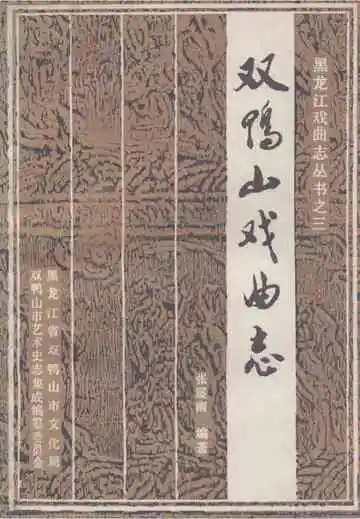 黑龙江戏曲志丛书之三
双鸭山戏曲志
张夏雨 编著
黑龙江省双鸭山市文化局
双鸭山市艺术史志集成编纂委员会